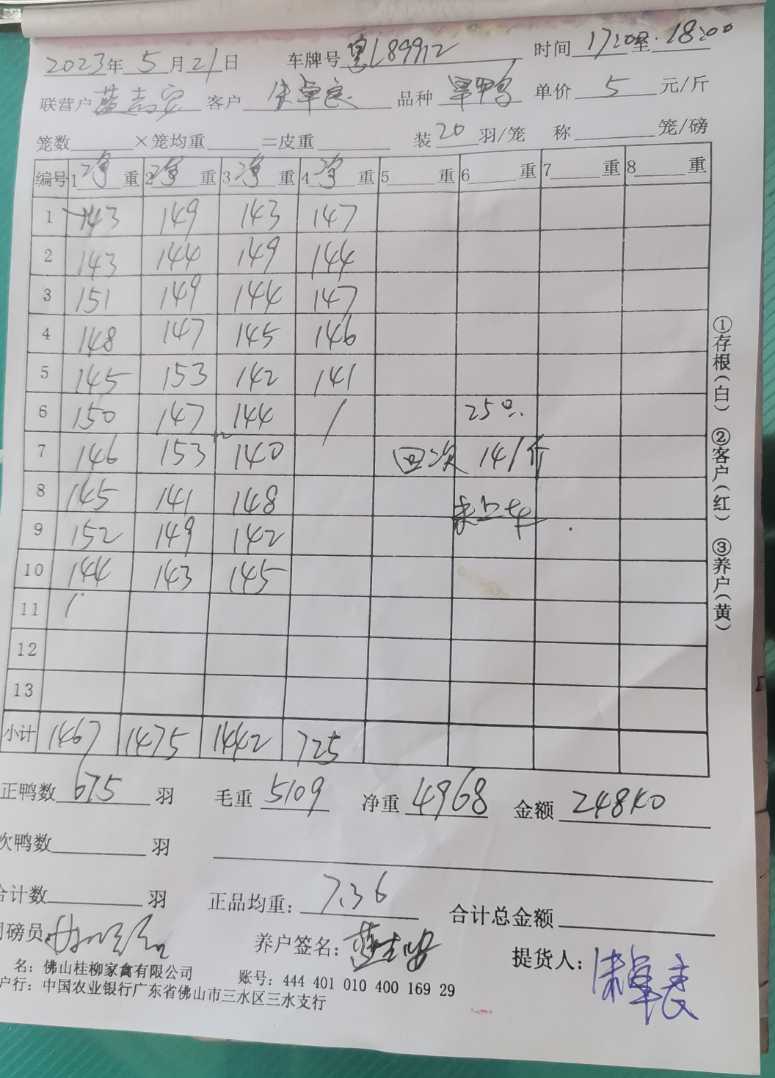 2023年5月21日 车牌号粤L89912 时间17:00至18:00
联营户 客户 品种 单价5元/斤
笼数 ×笼均重 =皮重 装20羽/笼 称 笼/磅
编号 1净重 2净重 3净重 4净重 5重 6重 7重 8重
1 143 149 143 147
2 143 144 149 144
3 151 149 144 147
4 148 147 145 146
5 145 153 142 141
6 150 147 144 / 250
7 146 153 140 回次 141斤
8 145 141 148 未上车
9 152 149 142
10 144 143 145
11
12
13
小计 1467 1475 1442 725
正鸭数675羽 毛重5109 净重4968 金额24840
次鸭数 羽
合计数 羽 正品均重:7.36 合计总金额
司磅员 养户签名: 提货人:
名:佛山桂柳家禽有限公司 账号:444 401 010 400 169 29
户行:中国农业银行广东省佛山市三水区三水支行
①存根(白) ②客户(红) ③养户(黄)